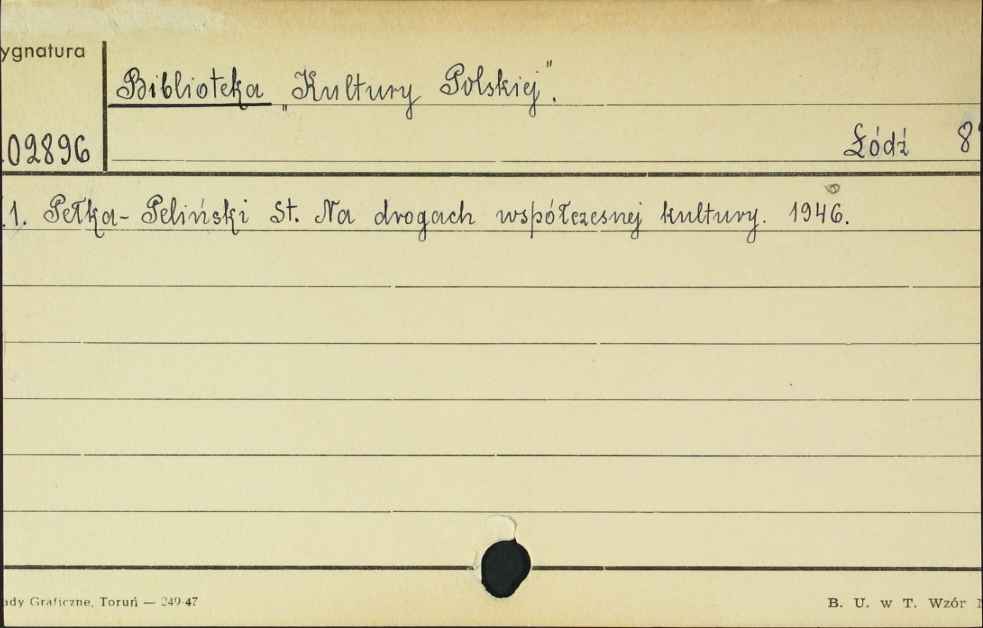 ygnatura
Biblioteka „Kultury Polskiej".
02896
Łódź 8°
1. Pełka-Peliński St. Na drogach współczesnej kultury. 1946.
ady Graficzne, Toruń — 249-47
B. U. w T. Wzór